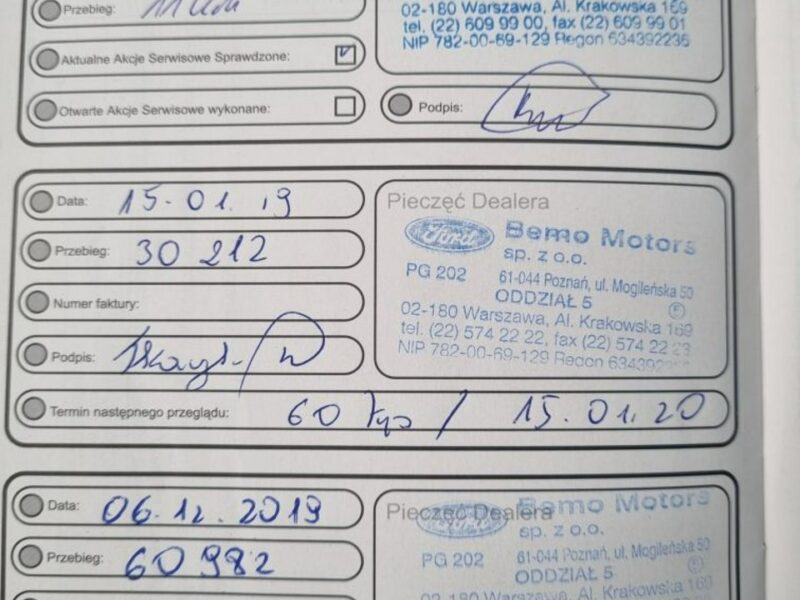 Przebieg:
02-180 Warszawa, Al. Krakowska 169
tel. (22) 609 99 00, fax (22) 609 99 01
NIP 782-00-69-129 Regon 634392235
Aktualne Akcje Serwisowe Sprawdzone:
Otwarte Akcje Serwisowe wykonane:
Podpis:
Data: 15-01.19
Przebieg: 30 212
Numer faktury:
Podpis:
Pieczęć Dealera
Ford
Bemo Motors
sp. z o.o.
PG 202
61-044 Poznań, ul. Mogileńska 50
ODDZIAŁ 5
02-180 Warszawa, Al. Krakowska 169
tel. (22) 574 22 22, fax (22) 574 22 23
NIP 782-00-69-129 Regon
Termin następnego przeglądu: 60 tys / 15.01.20
Data: 06.12.2019
Przebieg: 60 982
Pieczęć Dealera
Bemo Motors
sp. z o.o.
PG 202
61-044 Poznań, ul. Mogileńska 50
ODDZIAŁ 5
02-180 Warszawa, Al. Krakowska 169